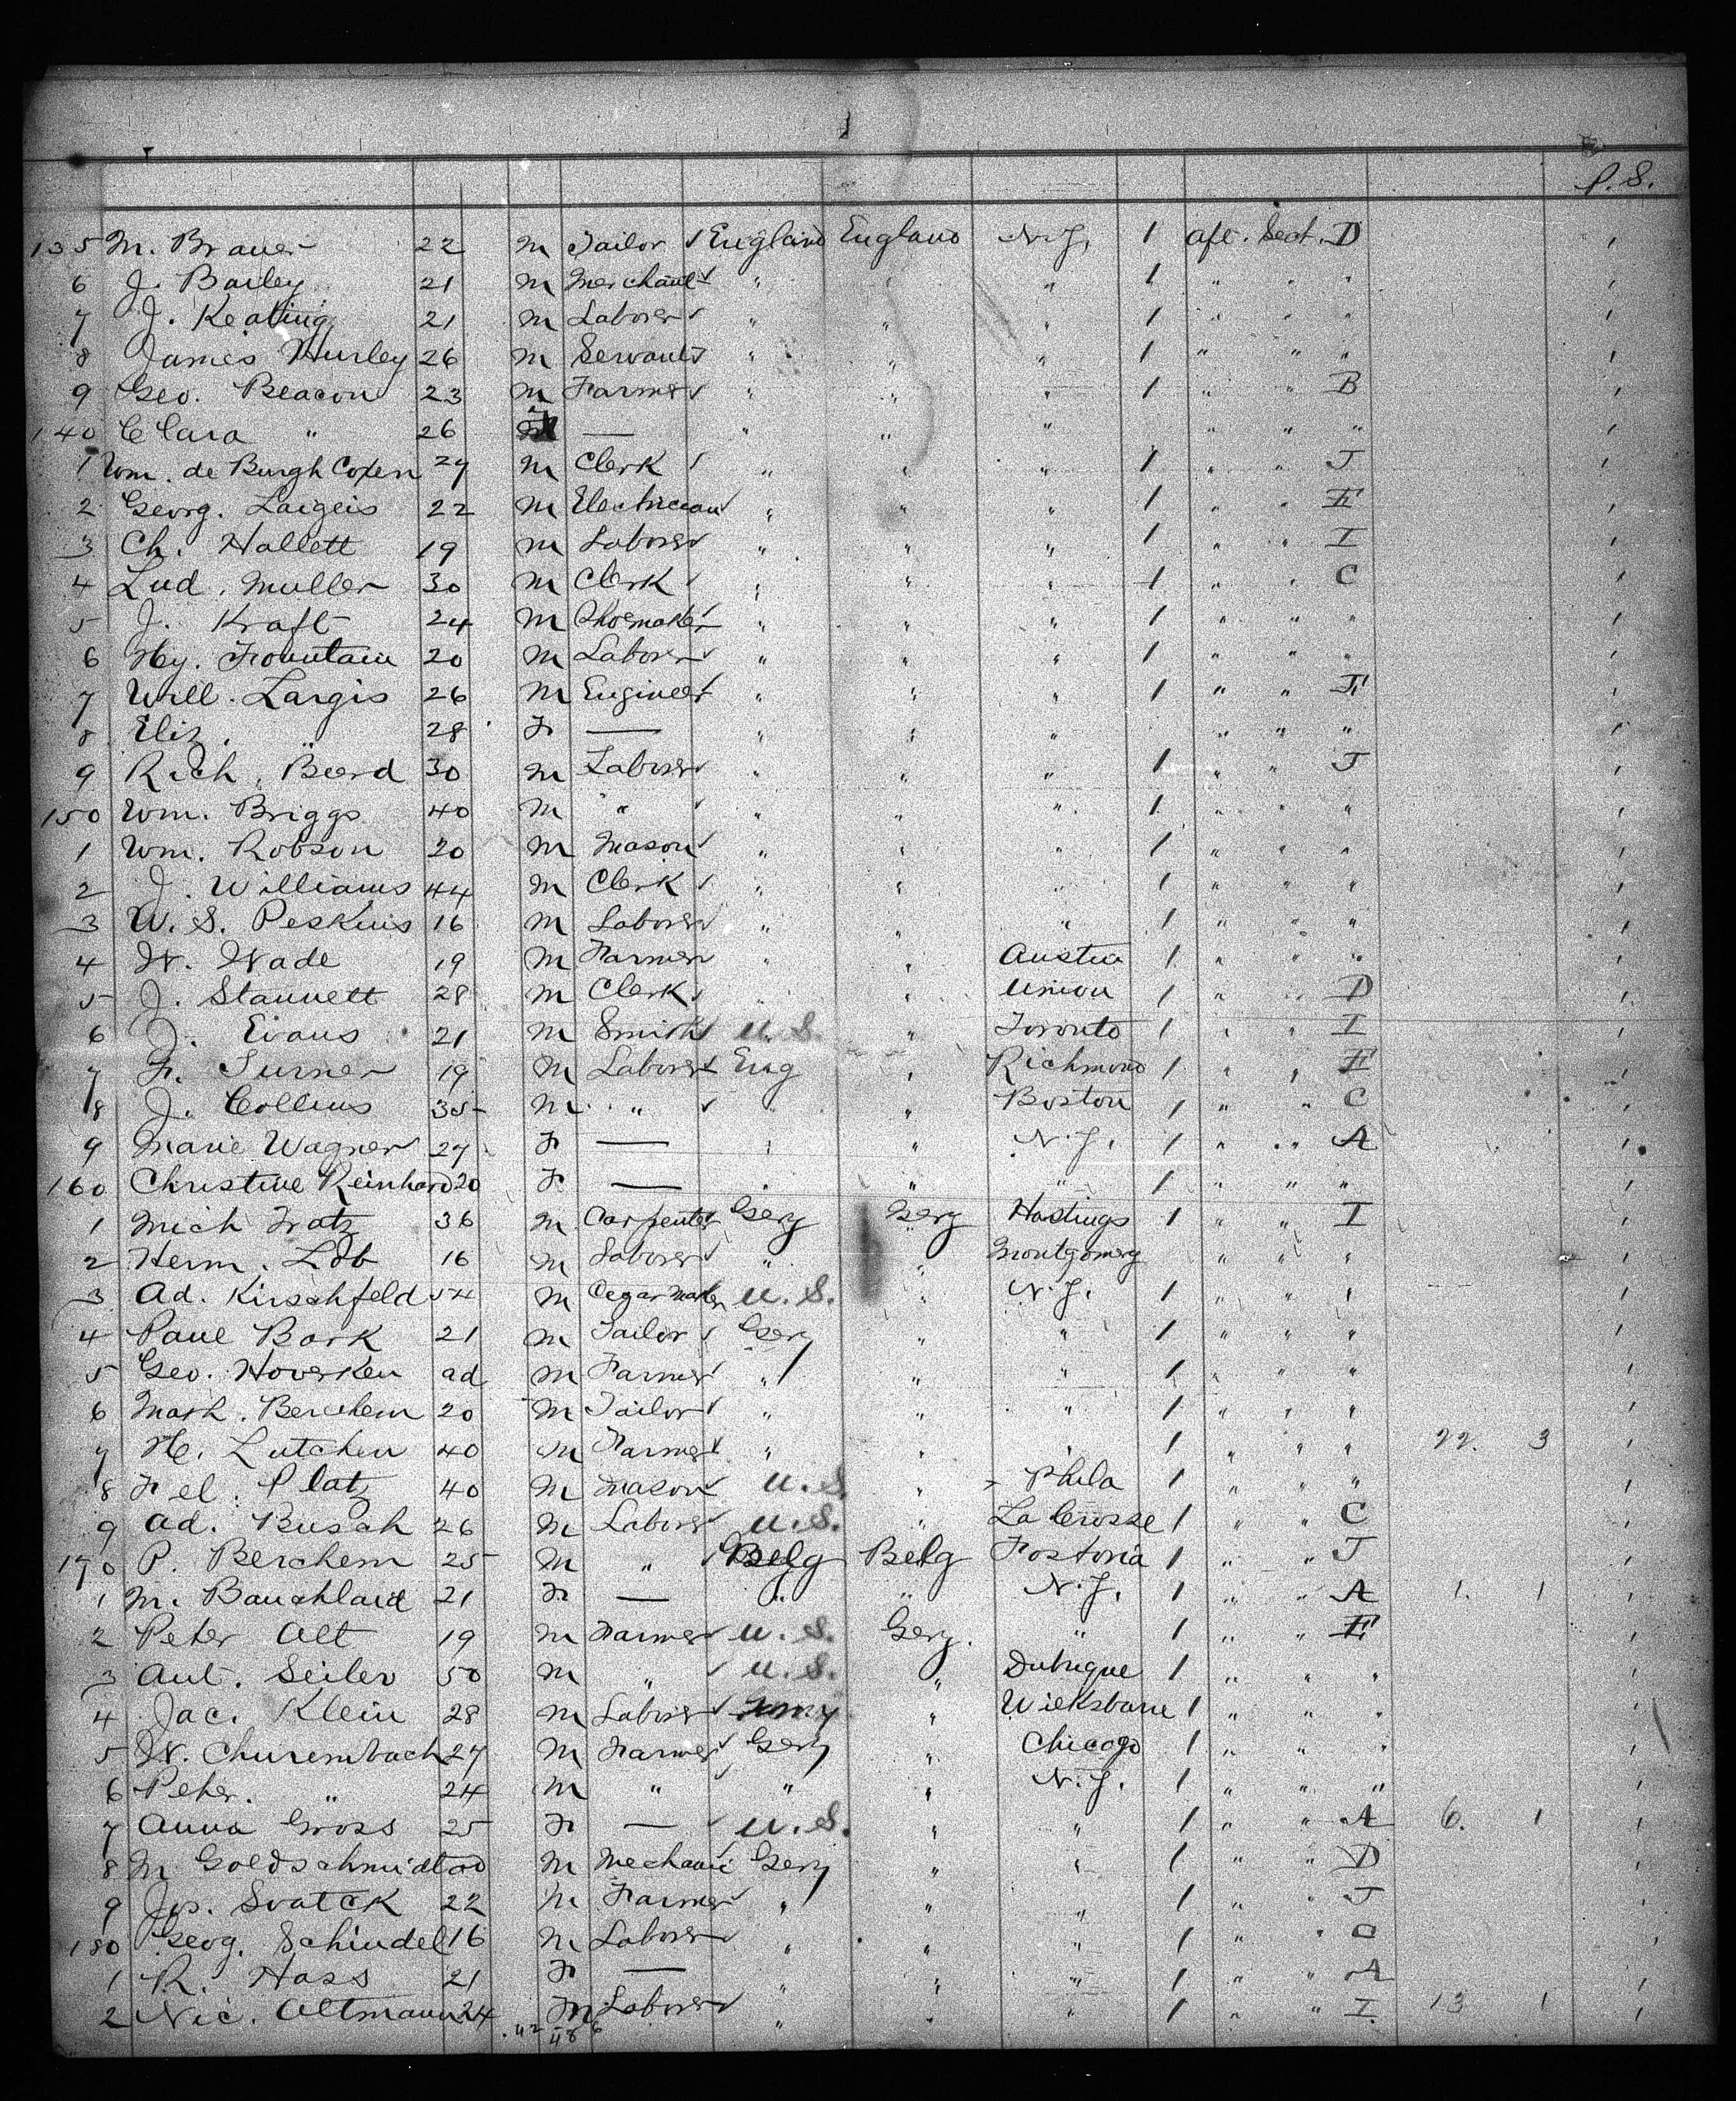 P. S.
135 M. Brauer 22 m Tailor England England N.Y. 1 aft. Sect. D
6 J. Bailey 21 m Merchant " " " 1 " " "
7 J. Keating 21 m Laborer " " " 1 " " "
8 James Hurley 26 m Servant " " " 1 " " "
9 Geo. Beacon 23 m Farmer " " " 1 " " B
140 Clara " 26 — " " " " " "
1 Wm. de Burgh Coxen 27 m Clerk " " " 1 " " J
2 Georg. Laigeis 22 m Electrician " " " 1 " " E
3 Ch. Hallett 19 m Laborer " " " 1 " " I
4 Lud. Muller 30 m Clerk " " " 1 " " C
5 J. Kraft 24 m Shoemaker " " " 1 " " "
6 Hy. Fountain 20 m Laborer " " " 1 " " "
7 Will. Largis 26 m Engineer " " " 1 " " E
8 Eliz. " 28 F — " " " " " "
9 Rich. Beard 30 m Laborer " " " 1 " " J
150 Wm. Briggs 40 m " " " " 1 " " "
1 Wm. Robson 20 m Mason " " " 1 " " "
2 J. Williams 44 m Clerk " " " 1 " " "
3 W. S. Peskins 16 m Laborer " " " 1 " " "
4 W. Wade 19 m Farmer " " Austin 1 " " "
5 J. Stannett 28 m Clerk " " Union 1 " " D
6 J. Evans 21 m Smith U.S. " Toronto 1 " " I
7 F. Turner 19 m Laborer Eng " Richmond 1 " " E
8 J. Collins 35 m " " " Boston 1 " " C
9 Marie Wagner 27 F — " " N.Y. 1 " " A
160 Christine Reinhard 20 F — " " " 1 " " "
1 Mich Fratz 36 m Carpenter Gery Gery Hastings 1 " " I
2 Herm. Löb 16 m Laborer " " Montgomery " " "
3 Ad. Kirschfeld 54 m Cegar maker U.S. " N.Y. 1 " " "
4 Paul Bork 21 m Tailor Gery " " 1 " " "
5 Geo. Hoverken ad m Farmer " " " 1 " " "
6 Math. Berchem 20 m Tailor " " " 1 " " "
7 H. Lutchen 40 m Farmer " " " 1 " " " 22. 3
8 Fel. Platz 40 m Mason U.S. " Phila 1 " " "
9 Ad. Busch 26 m Laborer U.S. " La Crosse 1 " " C
170 P. Berchem 25 m " Belg Belg Fostoria 1 " " J
1 M. Bauchlaid 21 F — " " N.Y. 1 " " A 1. 1
2 Peter Alt 19 m Farmer U.S. Gery. " 1 " " E
3 Ant. Seiler 50 m " U.S. " Dubuque 1 " " "
4 Jac. Klein 28 m Laborer " Wilksbarre 1 " " "
5 W. Churembach 27 m Farmer Gery " Chicago 1 " " "
6 Peter. " 24 m " " " N.Y. 1 " " "
7 Anna Gross 25 F — U.S. " " 1 " " A 6. 1
8 M Goldschmidt ad m Mechanic Gery " " 1 " " D
9 Jos. Svatek 22 m Farmer " " " 1 " " J
180 Georg. Schindel 16 m Laborer " " " 1 " " C
1 R. Hass 21 F — " " " 1 " " A
2 Nic. Altmann 24 m Laborer " " " 1 " " I 13 1